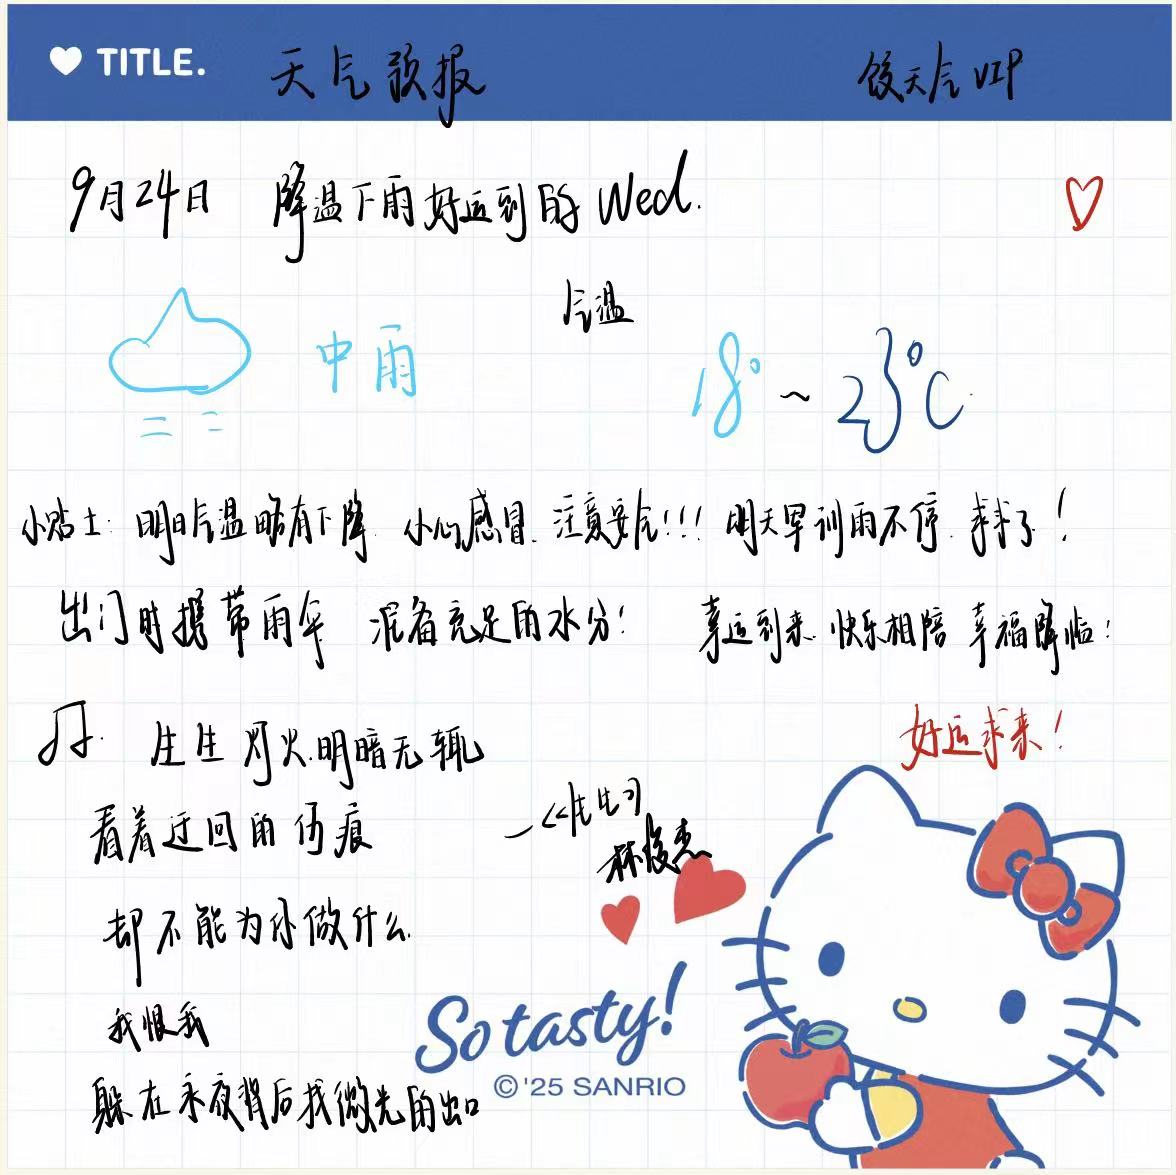 TITLE. 天气预报 饺天气VIP
9月24日 降温下雨好运到的 Wed.
气温
中雨 18°~23°C
小贴士: 明日气温略有下降 小心感冒. 注意安全!!! 明天早训雨不停. 求求了!
出门时携带雨伞 准备充足的水分! 幸运到来 快乐相陪 幸福降临!
好运求来!
生生灯火明暗无辄
看着迂回的伤痕
—《生生》
林俊杰
却不能为你做什么
我恨我
躲在永夜背后找微光的出口
So tasty!
©'25 SANRIO